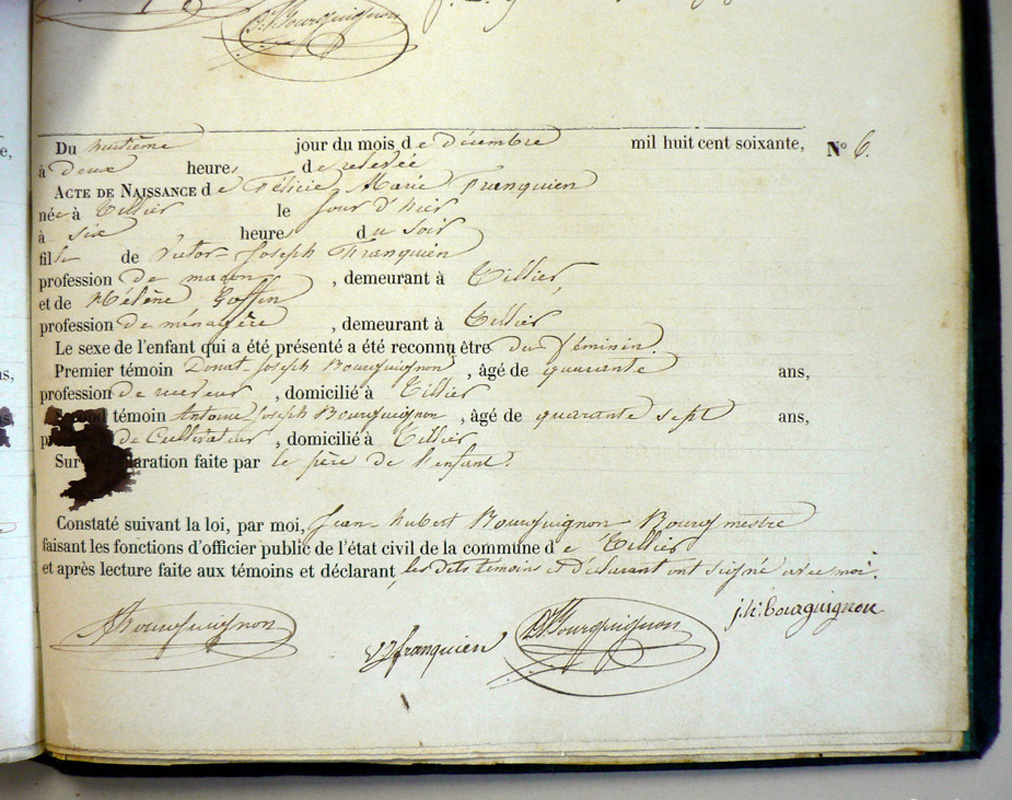 Bourguignon
Du huitième jour du mois de décembre mil huit cent soixante, N° 6.
à deux heures de relevée
ACTE DE NAISSANCE de Félicie Marie Franquien
née à Tillier le jour d'hier
à six heures du soir
fille de Victor-Joseph Franquien
profession de maçon, demeurant à Tillier,
et de Hélène Goffin
profession de ménagère, demeurant à Tillier
Le sexe de l'enfant qui a été présenté a été reconnu être du féminin.
Premier témoin Donat-Joseph Bourguignon, âgé de quarante ans,
profession de, domicilié à Tillier
témoin Antoine Joseph Bourguignon, âgé de quarante sept ans,
de Cultivateur, domicilié à Tillier
Sur aration faite par le père de l'enfant.
Constaté suivant la loi, par moi, Jean-hubert Bourguignon Bourgmestre
faisant les fonctions d'officier public de l'état civil de la commune de Tillier
et après lecture faite aux témoins et déclarant les dits témoins et déclarant ont signé avec moi.
Bourguignon franquien Bourguignon j.h. bourguignon